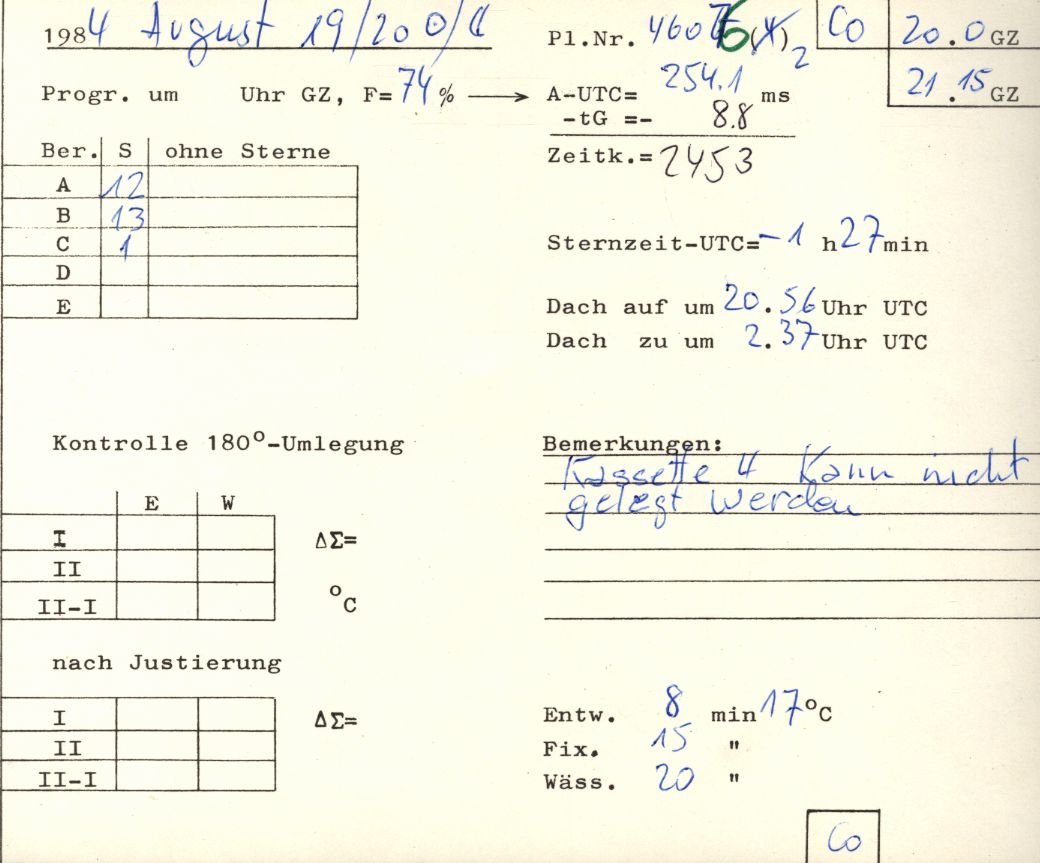 1984 August 19/20
Pl.Nr. 4607 6 (4) 2
Co
20.0 GZ
21.15 GZ
Progr. um Uhr GZ, F=74% → A-UTC= 254.1 ms
-tG =- 8.8
Zeitk.= 2453
Ber. S ohne Sterne
A 12
B 13
C 1
D
E
Sternzeit-UTC=-1 h 27 min
Dach auf um 20.56 Uhr UTC
Dach zu um 2.37 Uhr UTC
Kontrolle 180°-Umlegung
E W
I ΔΣ=
II
II-I °C
Bemerkungen:
Kassette 4 kann nicht
gelegt werden
nach Justierung
I ΔΣ=
II
II-I
Entw. 8 min 17°C
Fix. 15 "
Wäss. 20 "
Co